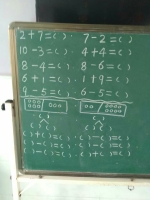 2+7=( ) 7-2=( )
10-3=( ) 4+4=( )
8-4=( ) 8-6=( )
6+1=( ) 1+9=( )
9-5=( ) 6-5=( )
( ) ( ) ( ) ( )
( )+( )=( ) ( )-( )=( )
( )-( )=( ) ( )-( )=( )
( )-( )=( ) ( )+( )=( )